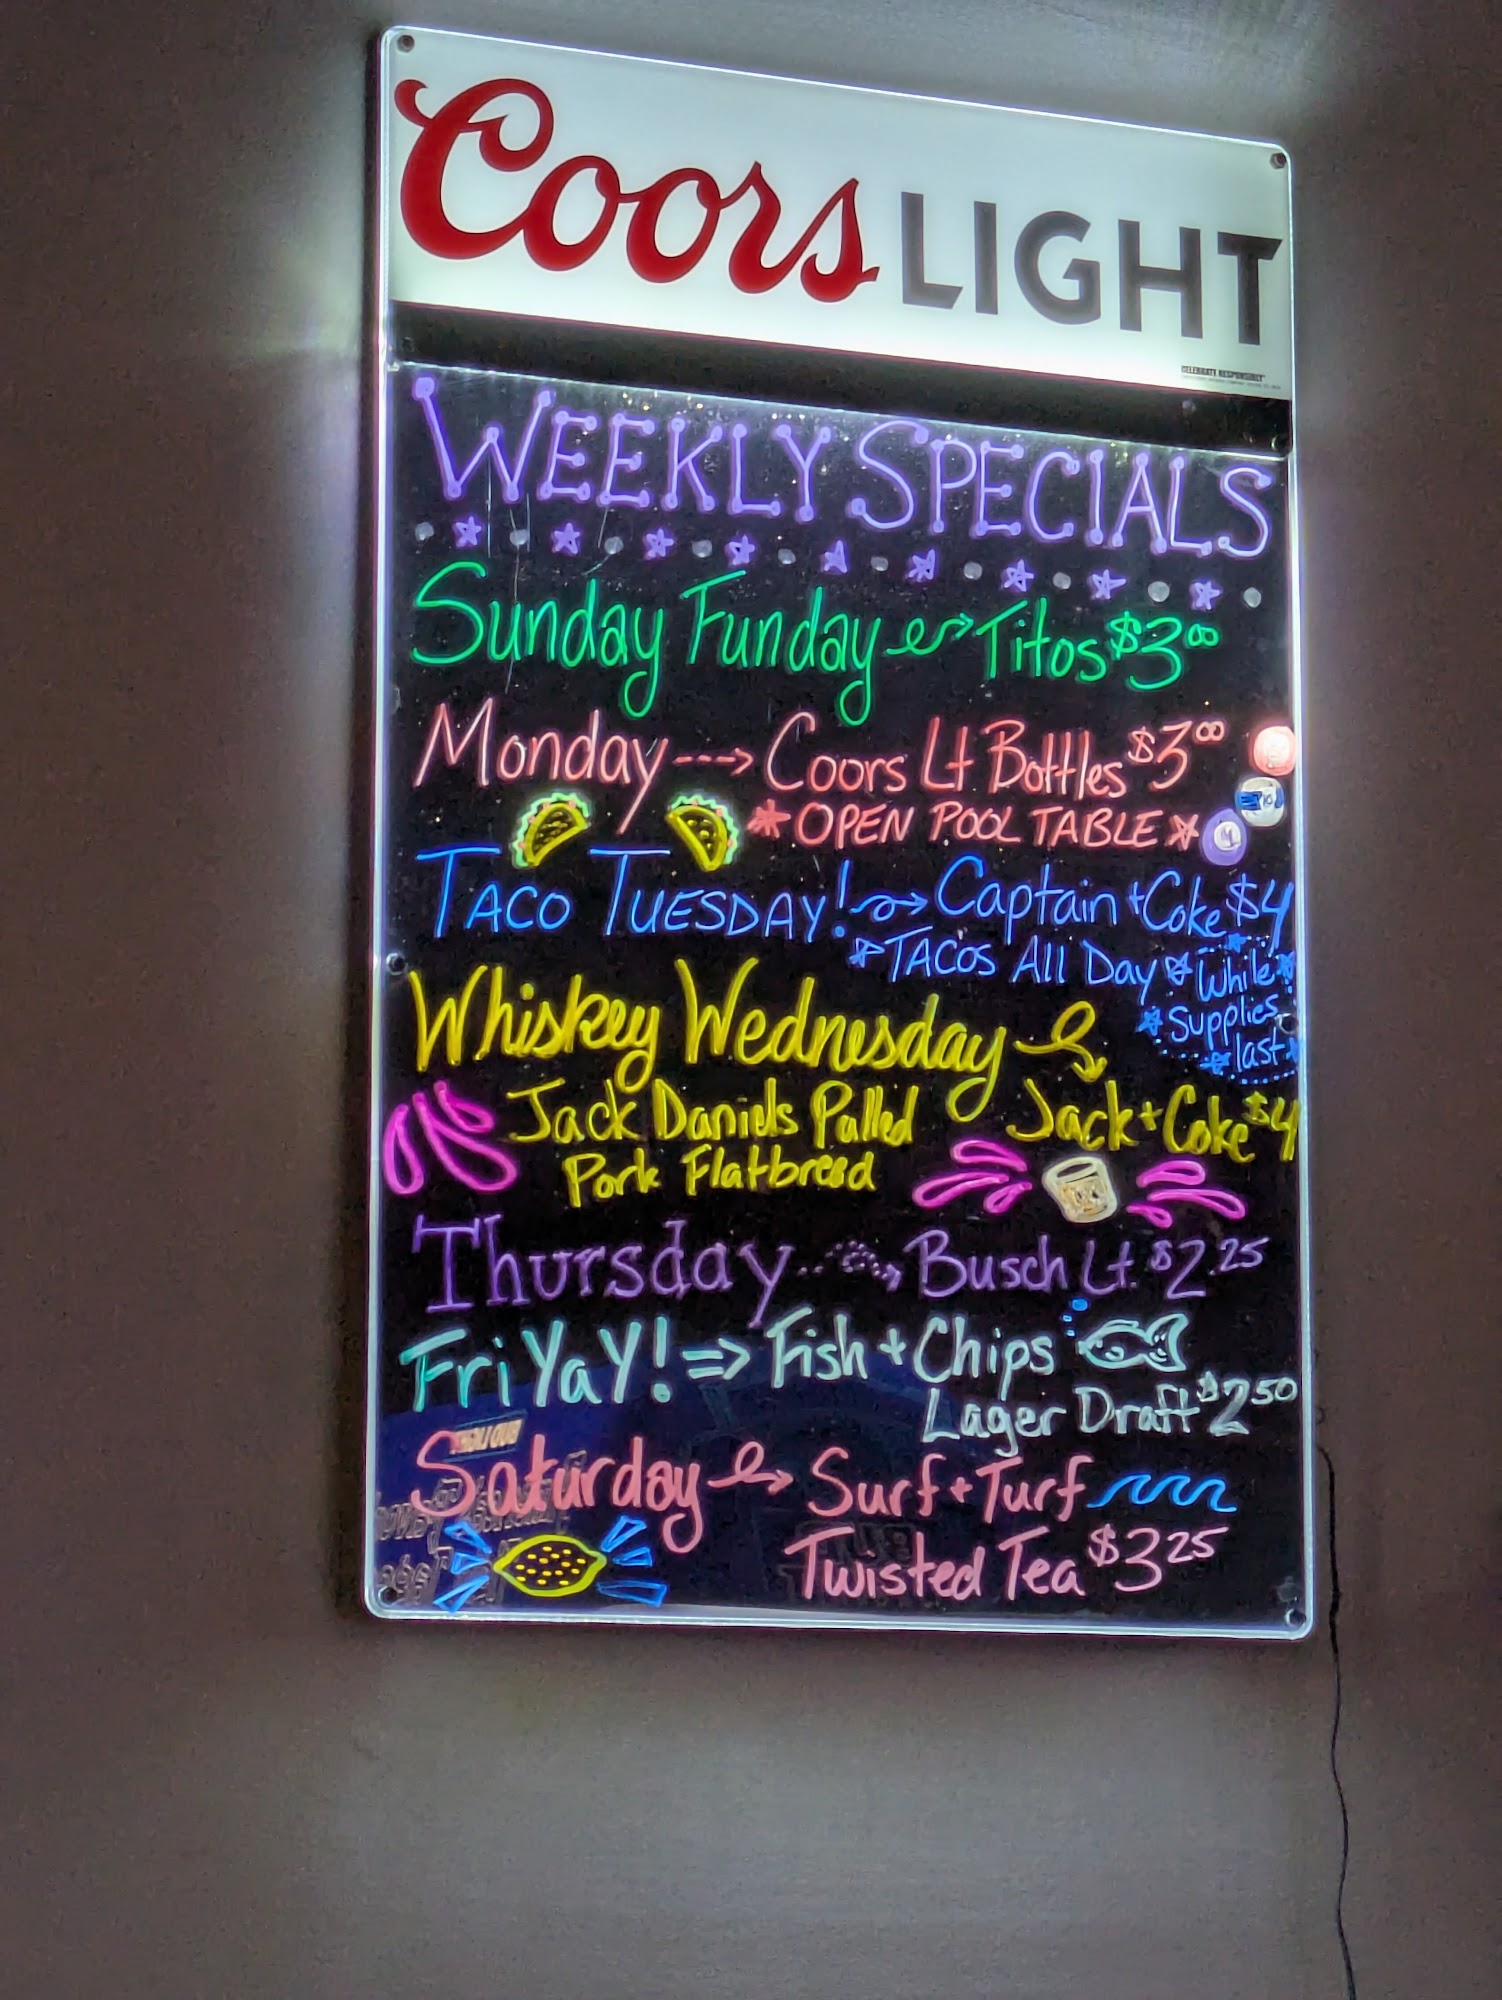 Coors LIGHT
CELEBRATE RESPONSIBLY
WEEKLY SPECIALS
Sunday Funday Titos $3.00
Monday Coors Lt Bottles $3.00
OPEN POOL TABLE
TACO TUESDAY! Captain + Coke $4
TACOS All Day While
Supplies
last
Whiskey Wednesday
Jack Daniels Pulled Jack + Coke $4
Pork Flatbread
Thursday Busch Lt. $2.25
Fri YaY! Fish + Chips
Lager Draft $2.50
Saturday Surf + Turf
Twisted Tea $3.25